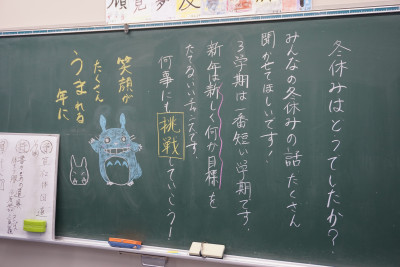 冬休みはどうでしたか?
みんなの冬休みの話、たくさん
聞かせてほしいです!
3学期は一番短い学期です。
新年は新しく何か目標を
たてるいいチャンスです。
何事にも挑戦していこう!
笑顔が
たくさん
うまれる
年に